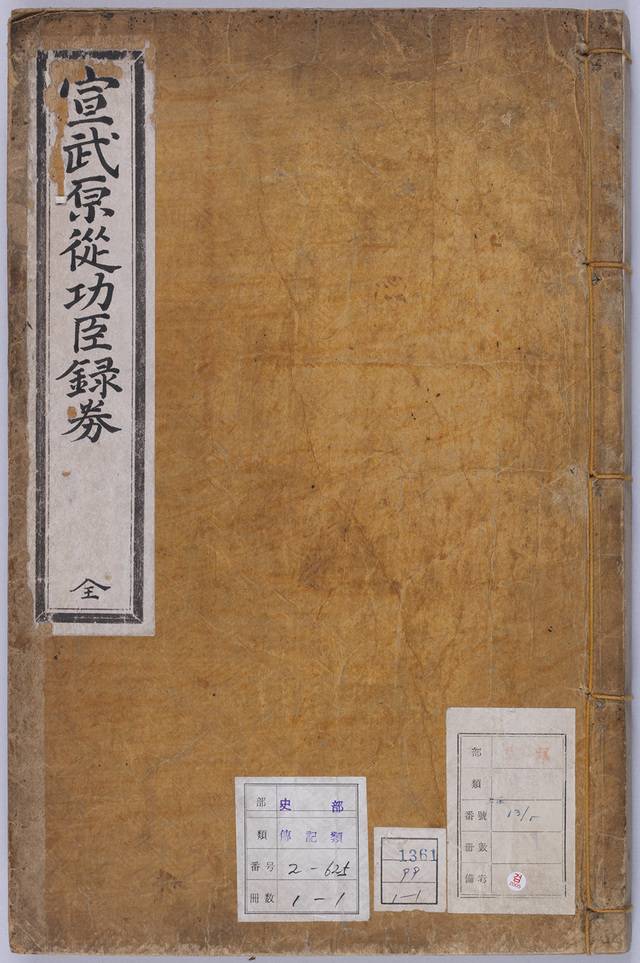 宣武原從功臣録券
全
部 史部
類 傳記類
番号 2-625
冊数 1-1
1361
99
1-1
部
類
番號
冊數
備考